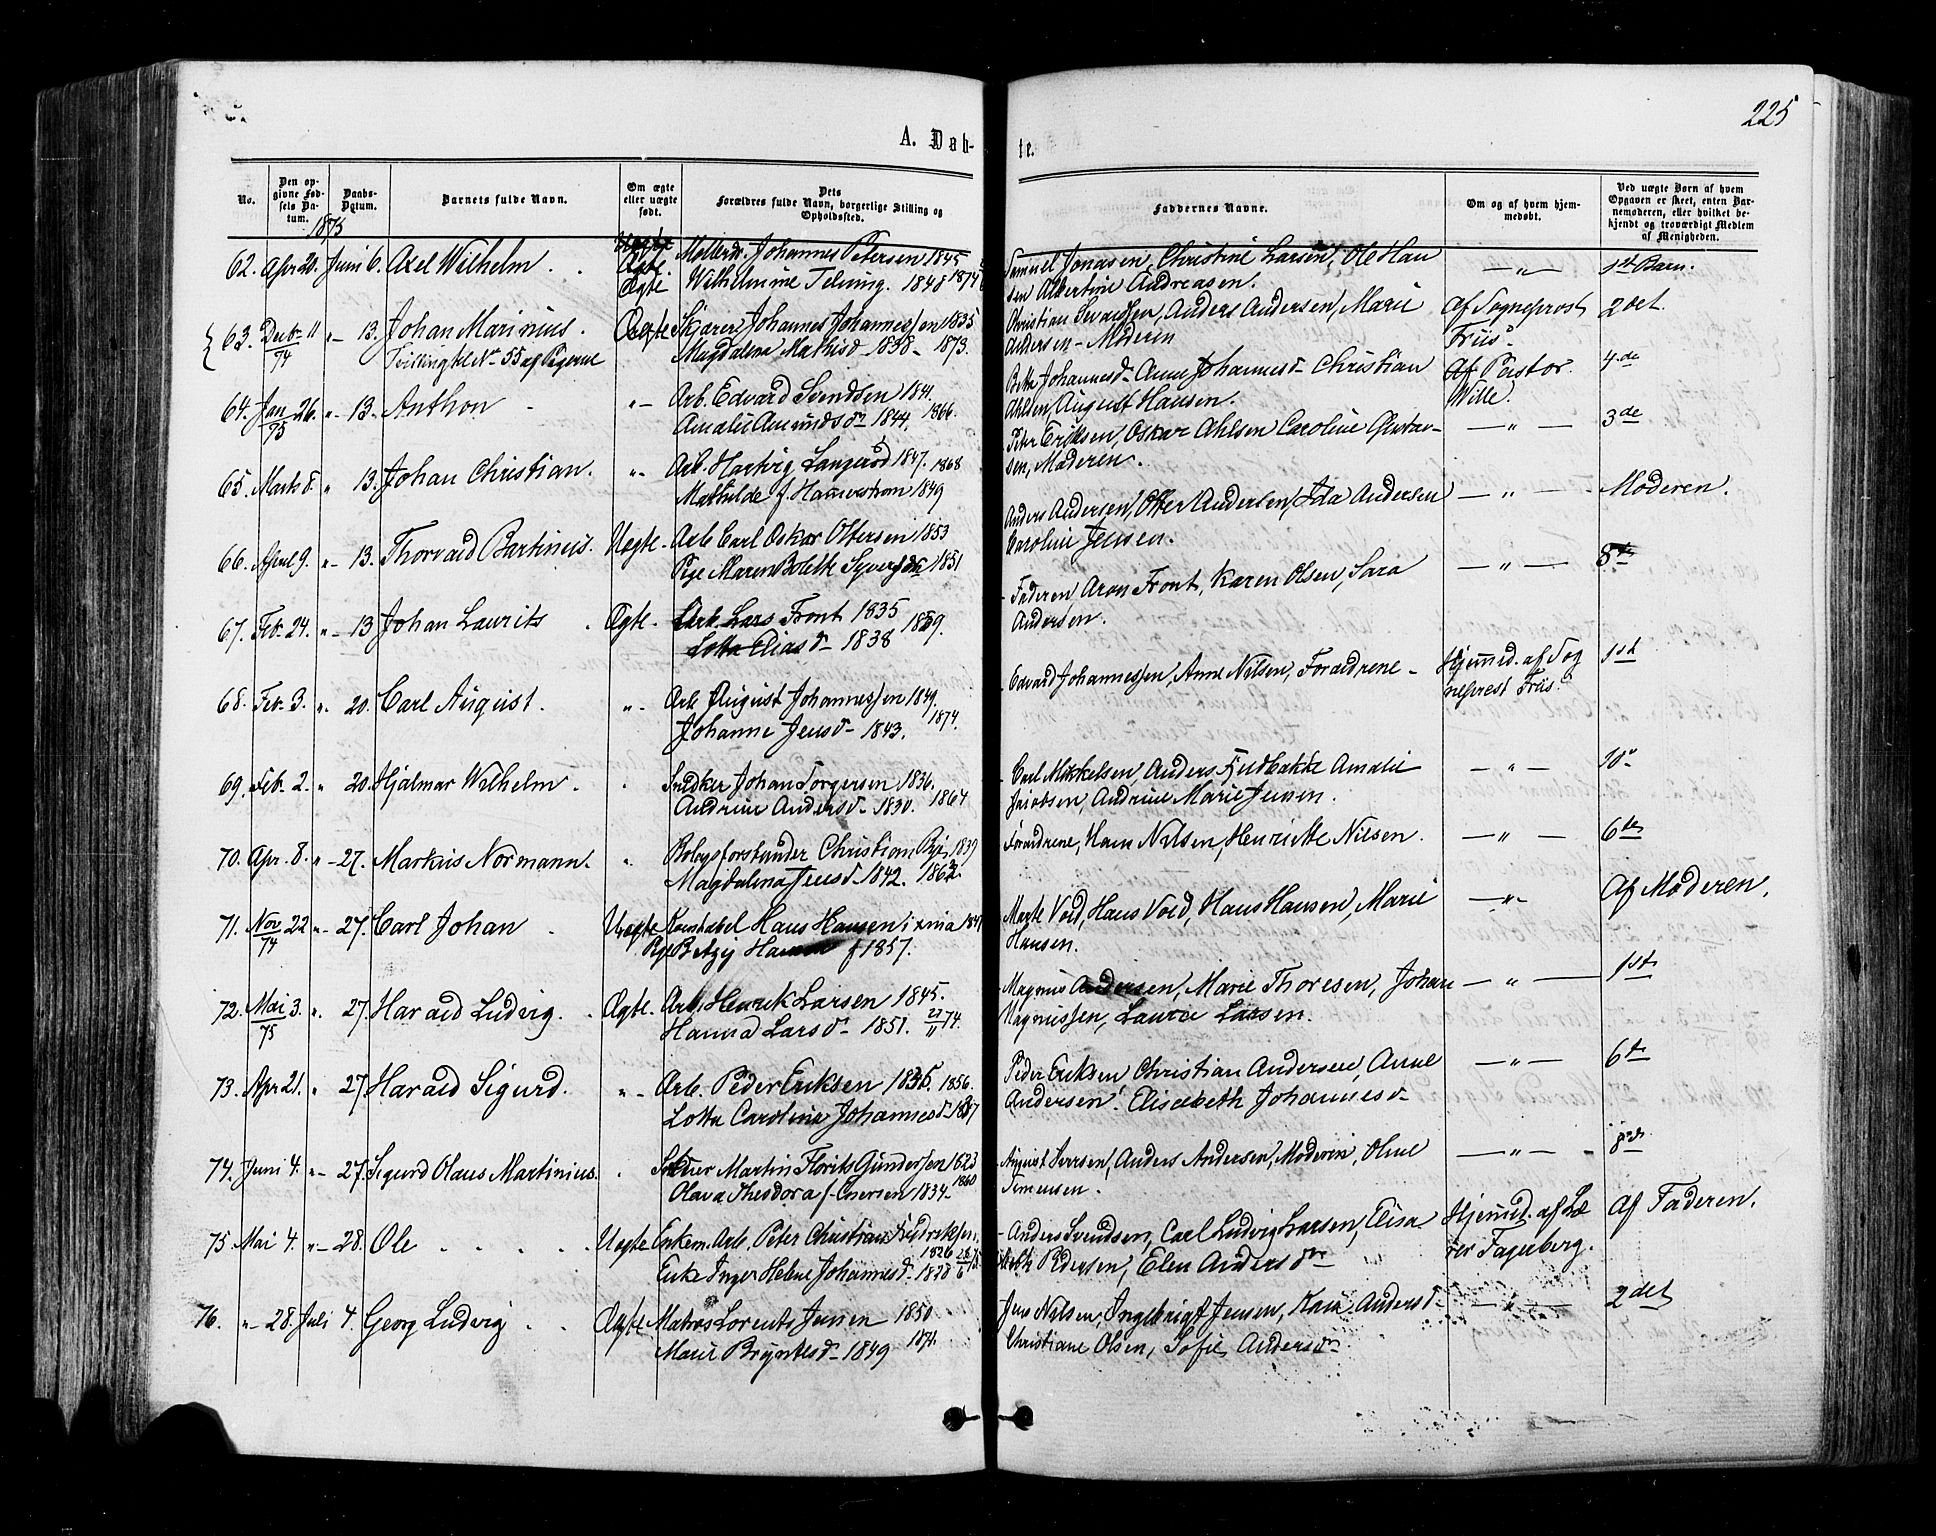 225
A. Døb-
te.
No.
Den op-
givne Fød-
sels Da-
tum.
Daabs-
Datum.
Barnets fulde Navn.
Om ægte
eller uægte
født.
Dets
Forældres fulde Navn, borgerlige Stilling og
Opholdssted.
Faddernes Navne.
Om og af hvem hjem-
medøbt.
Ved uægte Børn af hvem
Opgaven er skeet, enten Bar-
nemoderen, eller hvilket be-
kjendt og troværdigt Medlem
af Menigheden.
1875
62. Apr 20. Juni 6. Axel Wilhelm Ægte Johannes Petersen 1845
Wilhelmine 1848 1874
Samuel Jonasen, Christine Larsen, Ole Han
sen Albertine Andreasen.
—„— 1st Barn.
63. Decbr 11 74 „— 13. Johan Marinius. Ægte Skjærer Johannes Johannessen 1835
Tvilling til No 55 af Pigerne
Magdalena Mathisd. 1838 – 1873.
Christian Anders Andersen, Marie
Andersen – Moderen
af Sogneprost
Friis.
2det
64. Jan 26. 75 „— 13. Anthon „— Arb. Edvard Svendsen 1841
Amalie Amundsd. 1844. 1866.
Johannesd. Anne Johannesd. Christian
Ahlsen, August Hansen.
Af Pastor
Wille.
4de
65. Marts 8. „ 13. Johan Christian. „— Arb. Hartvig Langerød 1847. 1868
Mathilde f. Hammerstrøm 1849
Peter Eriksen, Oskar Ahlsen Caroline Gustav-
sen, Moderen.
—„— 3de
66. April 9. „— 13. Thorvald Bartinius. Uegte. Arb Carl Oskar Ottersen 1853
Pige Maren Bolette 1851
Anders Andersen, Otter Andersen, Ida Andersen
Caroline Jensen.
—„— Moderen.
67. Feb. 24. „— 13 Johan Laurits Ægte. Arb. Lars Front 1835
Lotta Eliasd. 1838 1859.
Faderen, Aron Front, Karen Olsen, Sara
Andersen.
—„— 8de
68. Feb. 3. „. 20. Carl August. „. Arb August Johannessen 1849.
Johanne Jensd. 1843. 1874.
Edvard Johannessen, Anne Nilsen, Forældrene
Hjemd. af Sog
neprest Friis.
1st
69. Feb. 2. „ 20. Hjalmar Wilhelm. Snedker Johan Torgersen 1836.
Andrine Andersd. 1830. 1864
Carl Mikkelsen, Anders Fjeldbakke Amalie
Jacobsen, Andrine Marie Jensen.
—„—
70. Apr. 8. „— 27. Markus Normann. „ Christian 1839
Magdalena Jensd. 1842. 1862.
Forældrene, Hans Nilsen, Henriette Nilsen.
—„— 6te
71. Nov 22 74 „— 27. Carl Johan Uegte Konstabel Hans Hansen
Pige f 1857.
Void, Hans Void, Hans Hansen, Marie
Hansen.
—„— Af Moderen.
72. Mai 3. 75 „. 27. Harald Ludvig. Ægte. Arb. Henrik Larsen 1845.
Hanna Larsd. 1851. 74.
Magnus Andersen, Marie Thoresen, Johan
Magnussen, Laura Larsen.
—„— 1st
73. Apr 21. „ 27. Harald Sigurd. „. Arb. Peder Eriksen 1835. 1856.
Lotta Caroline Johannesd.
Peder Eriksen Christian Andersen, Anne
Andersen. Elisabeth Johannesd.
—„— 6te
74. Juni 4. „— 27. Sigurd Olaus Martinius. Martin Gundersen
Olava Theodora f. Iversen 1834. 1860
August Iversen, Anders Andersen, Moderen, Oline
Simensen.
—„— 8de
75 Mai 4. „— 28. Ole Uegte Enkem. Arb. Peter Christian Fredriksen.
1826
Enke Inger Helene Johannesd. 1828
Anders Svendsen, Carl Ludvig Larsen, Elisa
beth Pedersen, Elen Andersd.
Hjemd. af Læ
rer Fagerberg.
Af Faderen.
76. „— 28. Juli 4. Georg Ludvig Ægte Matros Lorents Jensen 1850
Marie Bryntesd. 1849 1874.
Jens Nilsen, Ingebrigt Jensen, Karin Andersd.
Christiane Olsen, Sofie Andersd.
—„— 2det